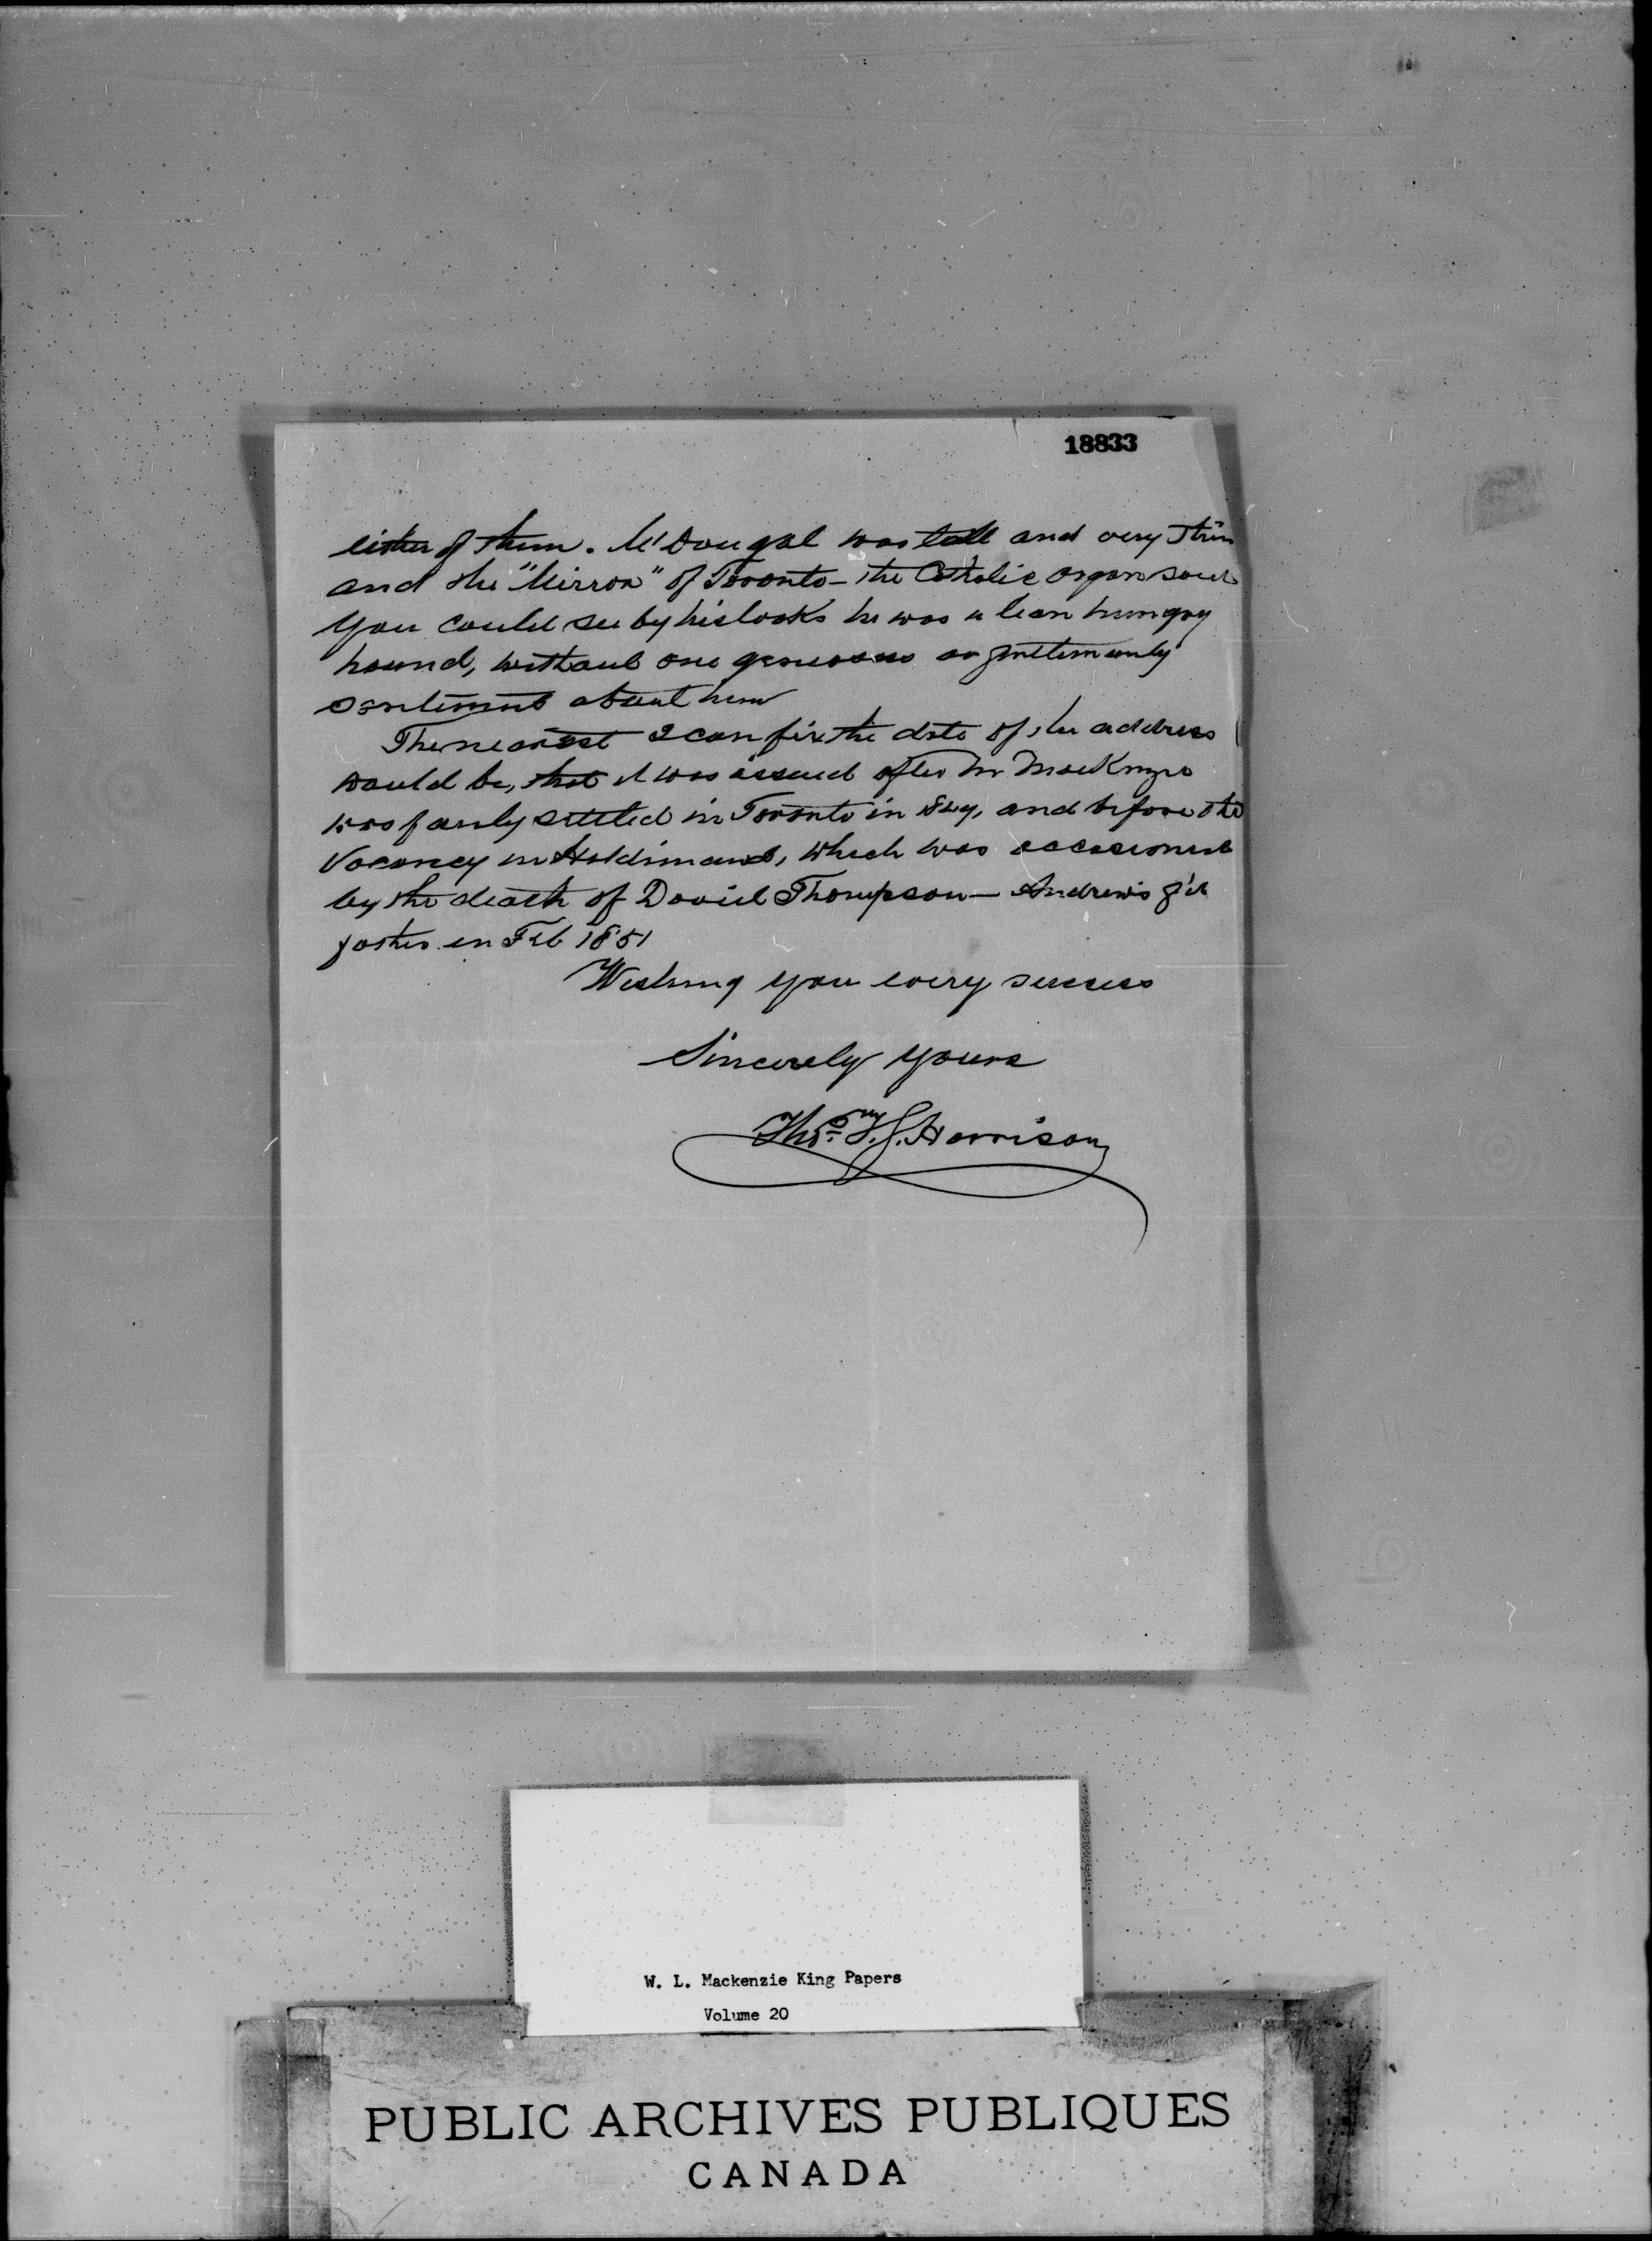 18833
either of them. McDougal was tall and very thin
and the "Mirror" of Toronto - the Catholic organ said
you could see by his looks he was a lean hungry
hound, without one generous or gentlemanly
sentiment about him
The nearest I can fix the date of the address
would be, that it was issued after Mr MacKenzie
was fairly settled in Toronto in and before the
Vacancy in Haldimand, which was occasioned
by the death of David Thompson - Andrew's
father in Feb 1851
Wishing you every success
Sincerely yours
Thos. Harrison
W. L. Mackenzie King Papers
Volume 20
PUBLIC ARCHIVES PUBLIQUES
CANADA